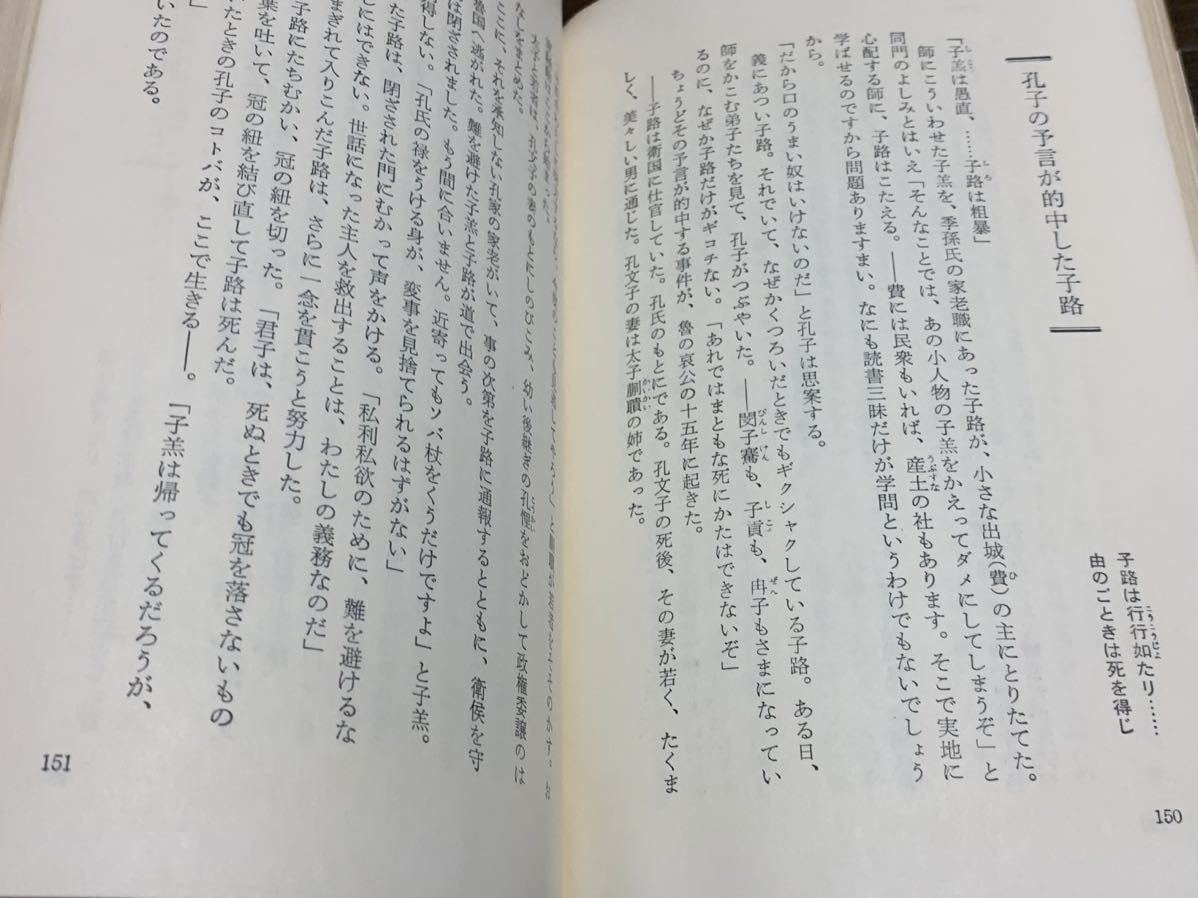 孔子の予言が的中した子路
子路は行行如たり……
由のごときは死を得じ
「子羔は愚直、……子路は粗暴」
師にこういわせた子羔を、季孫氏の家老職にあった子路が、小さな出城(費)の主にとりたてた。
同門のよしみとはいえ「そんなことでは、あの小人物の子羔をかえってダメにしてしまうぞ」と
心配する師に、子路はこたえる。――費には民衆もいれば、産土の社もあります。そこで実地に
学ばせるのですから問題ありますまい。なにも読書三昧だけが学問というわけでもないでしょう
から。
「だから口のうまい奴はいけないのだ」と孔子は思案する。
義にあつい子路。それでいて、なぜかくつろいだときでもギクシャクしている子路。ある日、
師をかこむ弟子たちを見て、孔子がつぶやいた。――閔子騫も、子貢も、冉子もさまになってい
るのに、なぜか子路だけがギコチない。「あれではまともな死にかたはできないぞ」
ちょうどその予言が的中する事件が、魯の哀公の十五年に起きた。
――子路は衛国に仕官していた。孔氏のもとにである。孔文子の死後、その妻が若く、たくま
しく、美々しい男に通じた。孔文子の妻は太子蒯聵の姉であった。
150
太子と若者は、孔文子の妻のもとにしのびこみ、幼い後継ぎの孔悝をおどかして政権委譲のは
なしをまとめた。
ここに、それを承知しない孔家の家老がいて、事の次第を子路に通報するとともに、衛侯を守
魯国へ逃がれた。難を避けた子羔と子路が道で出会う。
は閉ざされました。もう間に合いません。近寄ってもソバ杖をくうだけですよ」と子羔。
得しない。「孔氏の禄をうける身が、変事を見捨てられるはずがない」
た子路は、閉ざされた門にむかって声をかける。「私利私欲のために、難を避けるな
しにはできない。世話になった主人を救出することは、わたしの義務なのだ」
まぎれて入りこんだ子路は、さらに一念を貫こうと努力した。
子路にたちむかい、冠の紐を切った。「君子は、死ぬときでも冠を落さないもの
葉を吐いて、冠の紐を結び直して子路は死んだ。
たときの孔子のコトバが、ここで生きる――。「子羔は帰ってくるだろうが、
」
いたのである。
151